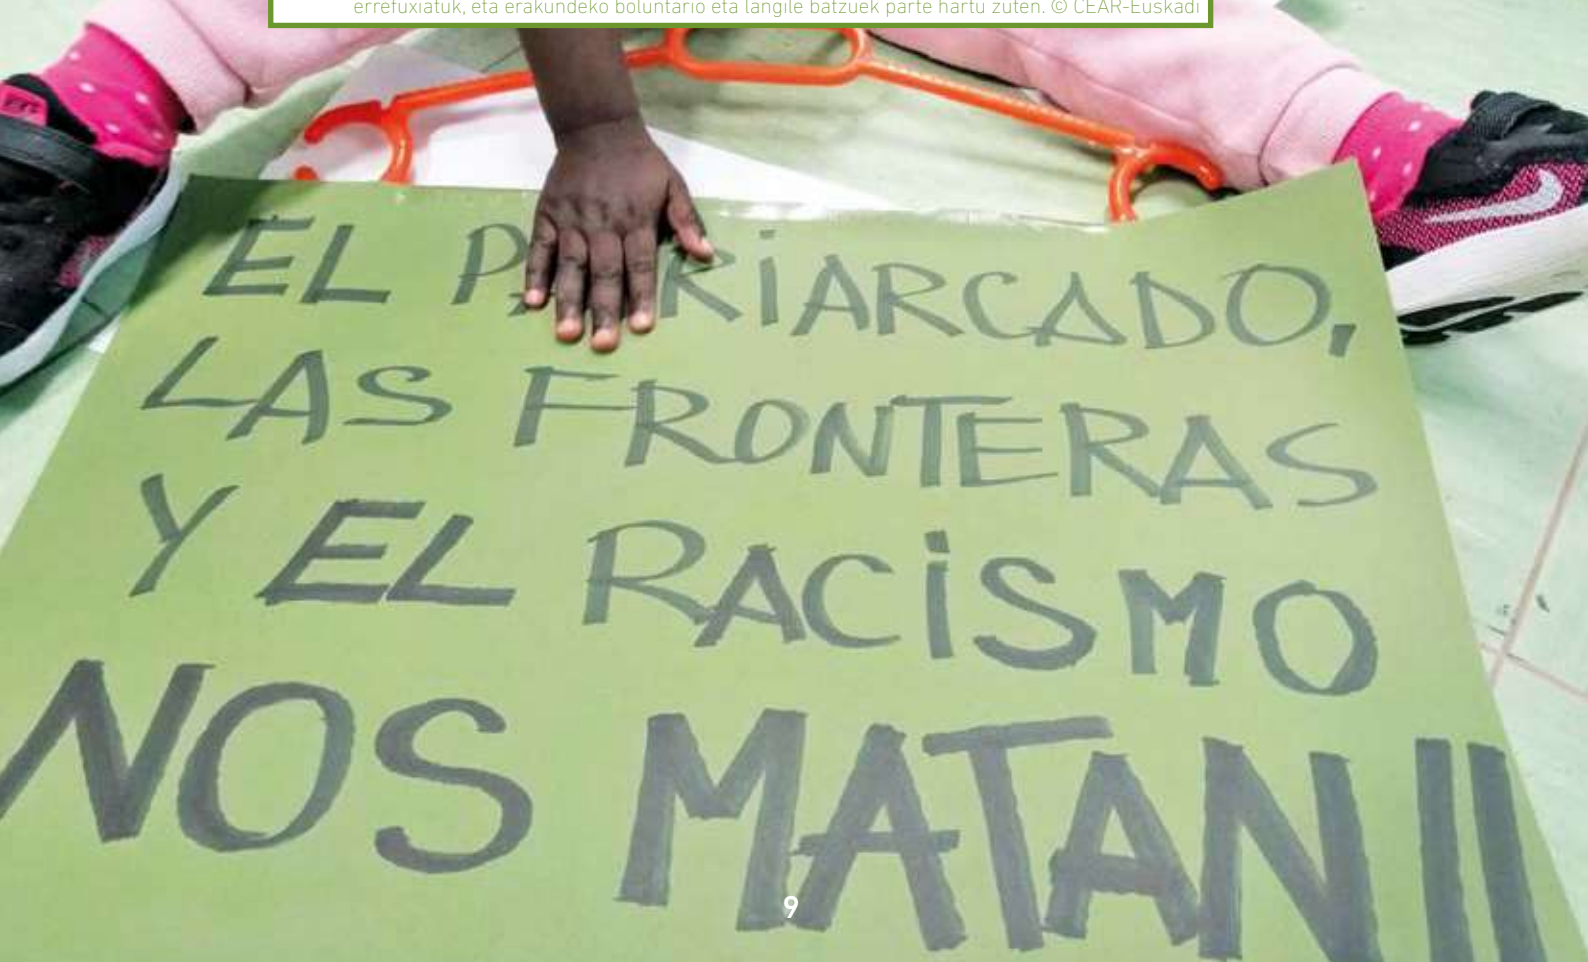 errefuxiatuk, eta erakundeko boluntario eta langile batzuek parte hartu zuten. © CEAR-Euskadi
EL PATRIARCADO,
LAS FRONTERAS
Y EL RACISMO
NOS MATAN!!
9